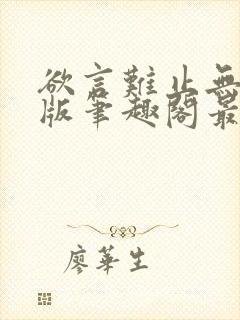 欲言難止無
版筆趣閣最
廖華生